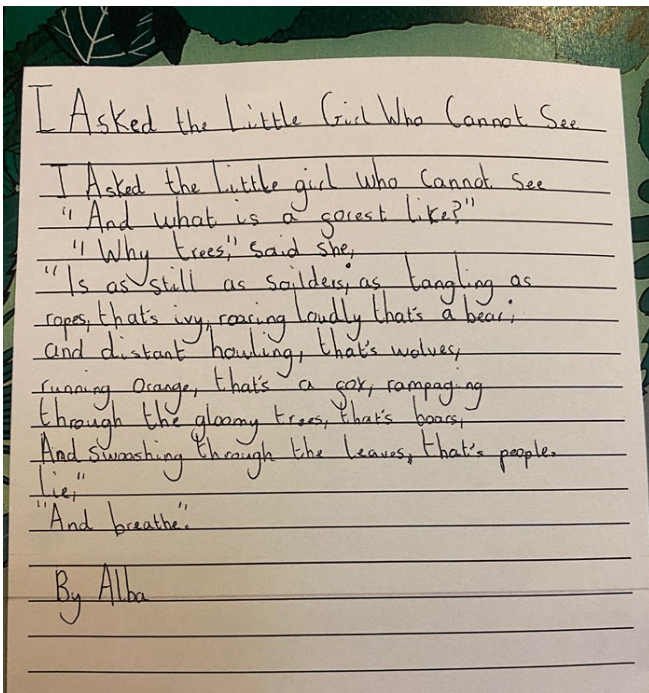 I Asked the Little Girl Who Cannot See
I Asked the Little girl who Cannot See
"And what is a forest like?"
"Why trees," said she,
"Is as still as soilders; as tangling as
ropes, that's ivy, roaring loudly that's a bear;
and distant howling, that's wolves;
running orange, that's a fox, rampaging
through the gloomy trees, that's boars,
And swooshing through the leaves, that's people.
lie,"
"And breathe".
By Alba